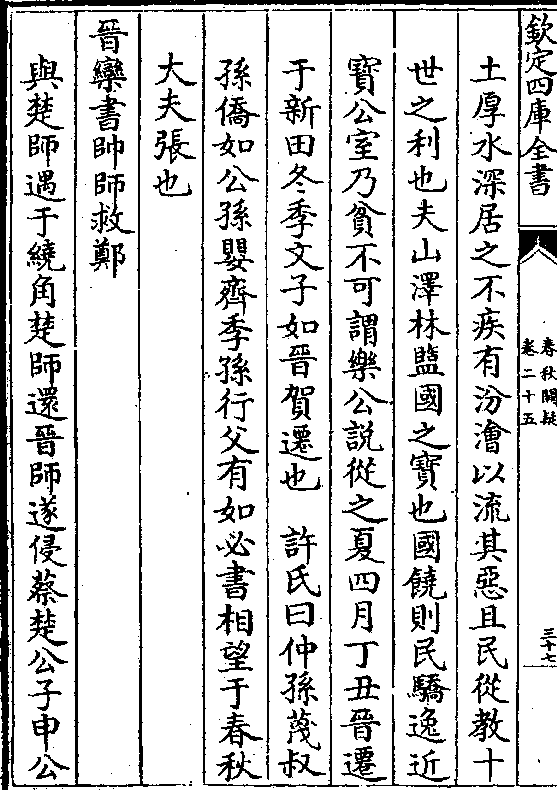 欽定四庫全書
春秋闕疑
卷二十五
三十七
土厚水深居之不疾有汾澮以流其惡且民從教十
世之利也夫山澤林盬國之寶也國饒則民驕逸近
寶公室乃貧不可謂樂公説從之夏四月丁丑晉遷
于新田冬季文子如晉賀遷也　許氏曰仲孫蔑叔
孫僑如公孫嬰齊季孫行父有如必書相望于春秋
大夫張也
晉欒書帥師救鄭
與楚師遇于繞角楚師還晉師遂侵蔡楚公子申公